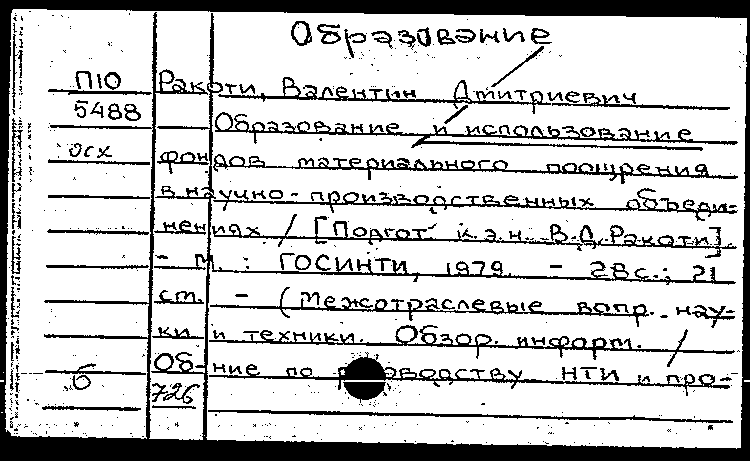 Образование
П10 Ракоти, Валентин Дмитриевич
5488 Образование и использование
осх фондов материального поощрения
в научно-производственных объеди-
нениях / [Подгот. к.э.н. В.Д.Ракоти].
- М. : ГОСИНТИ, 1979. - 28с.; 21
см. - (Межотраслевые вопр. нау-
ки и техники. Обзор. информ. /
Об-ние по НТИ и про-
б 726